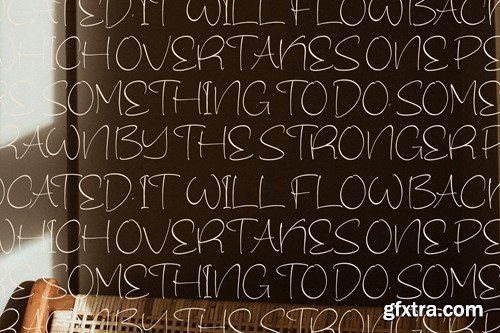 OCATED. IT WILL FLOW BACK
WHICH OVERTAKES ONE PS
RE SOMETHING TO DO. SOME
RAWN BY THE STRONGER P
OCATED. IT WILL FLOW BACK
WHICH OVERTAKES ONE PS
RE SOMETHING TO DO. SOME
gfxtra.com